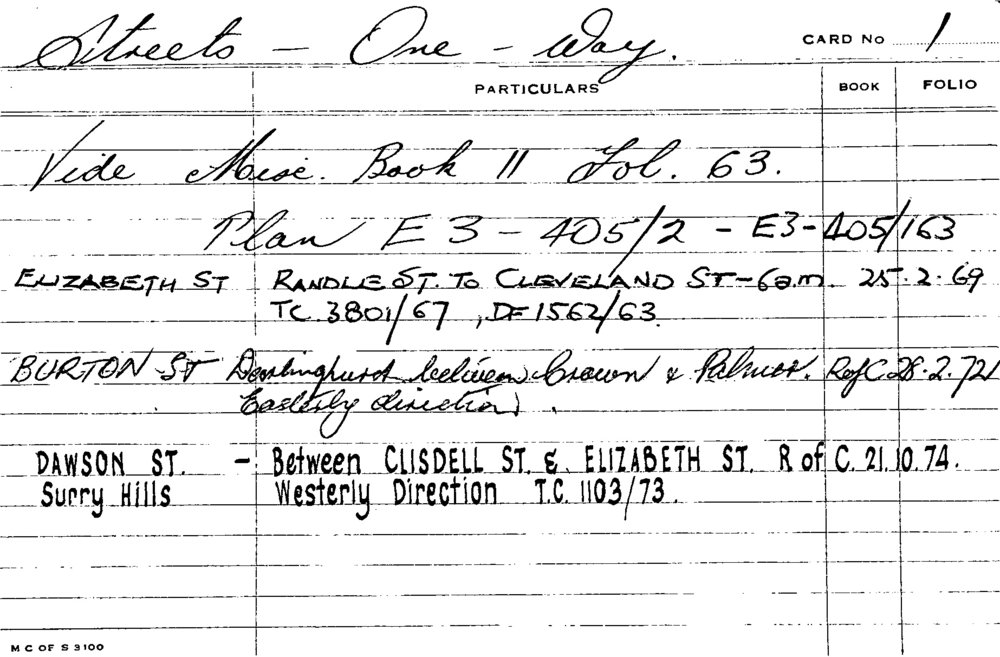 Streets - One - Way.
CARD No 1
PARTICULARS BOOK FOLIO
Vide Misc. Book 11 Fol. 63.
Plan E3 - 405/2 - E3-405/163
ELIZABETH ST RANDLE ST. TO CLEVELAND ST - 6a.m. 25.2.69
TC.3801/67, DF1562/63.
BURTON ST Darlinghurst between Crown & Palmer. RofC 28.2.72
Easterly direction.
DAWSON ST. - Between CLISDELL ST. & ELIZABETH ST. R of C. 21.10.74.
Surry Hills Westerly Direction T.C. 1103/73.
M C OF S 3100